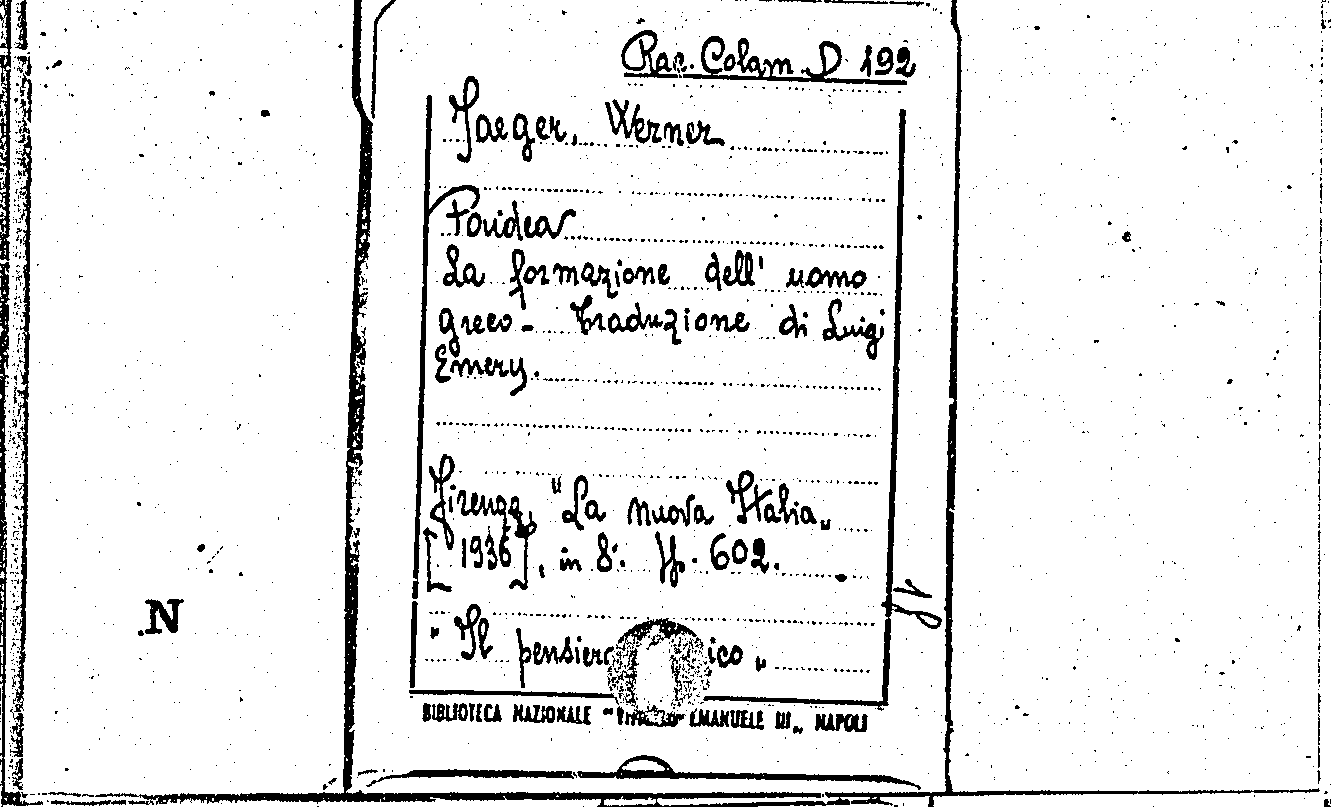 Rac. Colam. D 192
Jaeger, Werner
Paideia
La formazione dell' uomo
greco - Traduzione di Luigi
Emery.
Firenze, "La nuova Italia"
[1936], in 8°. pp. 602.
"Il ico"
BIBLIOTECA NAZIONALE " EMANUELE III", NAPOLI
N